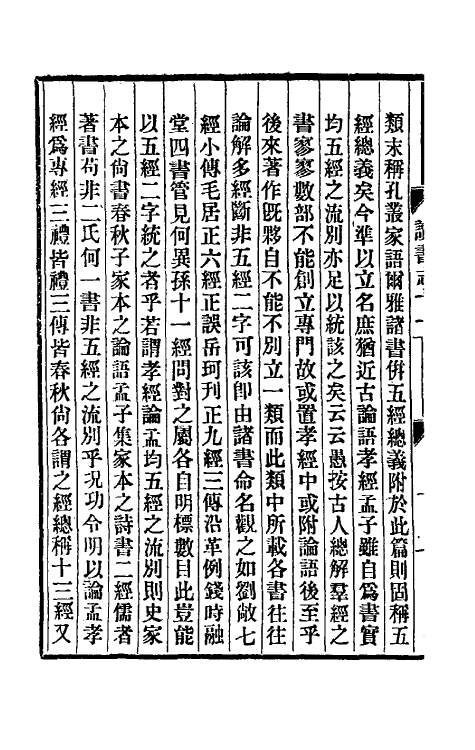 類末稱孔叢家語爾雅諸書倂五經總義附於此篇則固稱五
經總義矣今準以立名庶猶近古論語孝經孟子雖自爲書實
均五經之流別亦足以統該之矣云云愚按古人總解羣經之
書寥寥數部不能創立專門故或置孝經中或附論語後至乎
後來著作旣夥自不能不別立一類而此類中所載各書往往
論解多經斷非五經二字可該卽由諸書命名觀之如劉敞七
經小傳毛居正六經正誤岳珂刊正九經三傳沿革例錢時融
堂四書管見何異孫十一經問對之屬各自明標數目此豈能
以五經二字統之者乎若謂孝經論孟均五經之流別則史家
本之尙書春秋子家本之論語孟子集家本之詩書二經儒者
著書苟非二氏何一書非五經之流別乎况功令明以論孟孝
經爲專經三禮皆禮三傳皆春秋尙各謂之經總稱十三經又
讀書